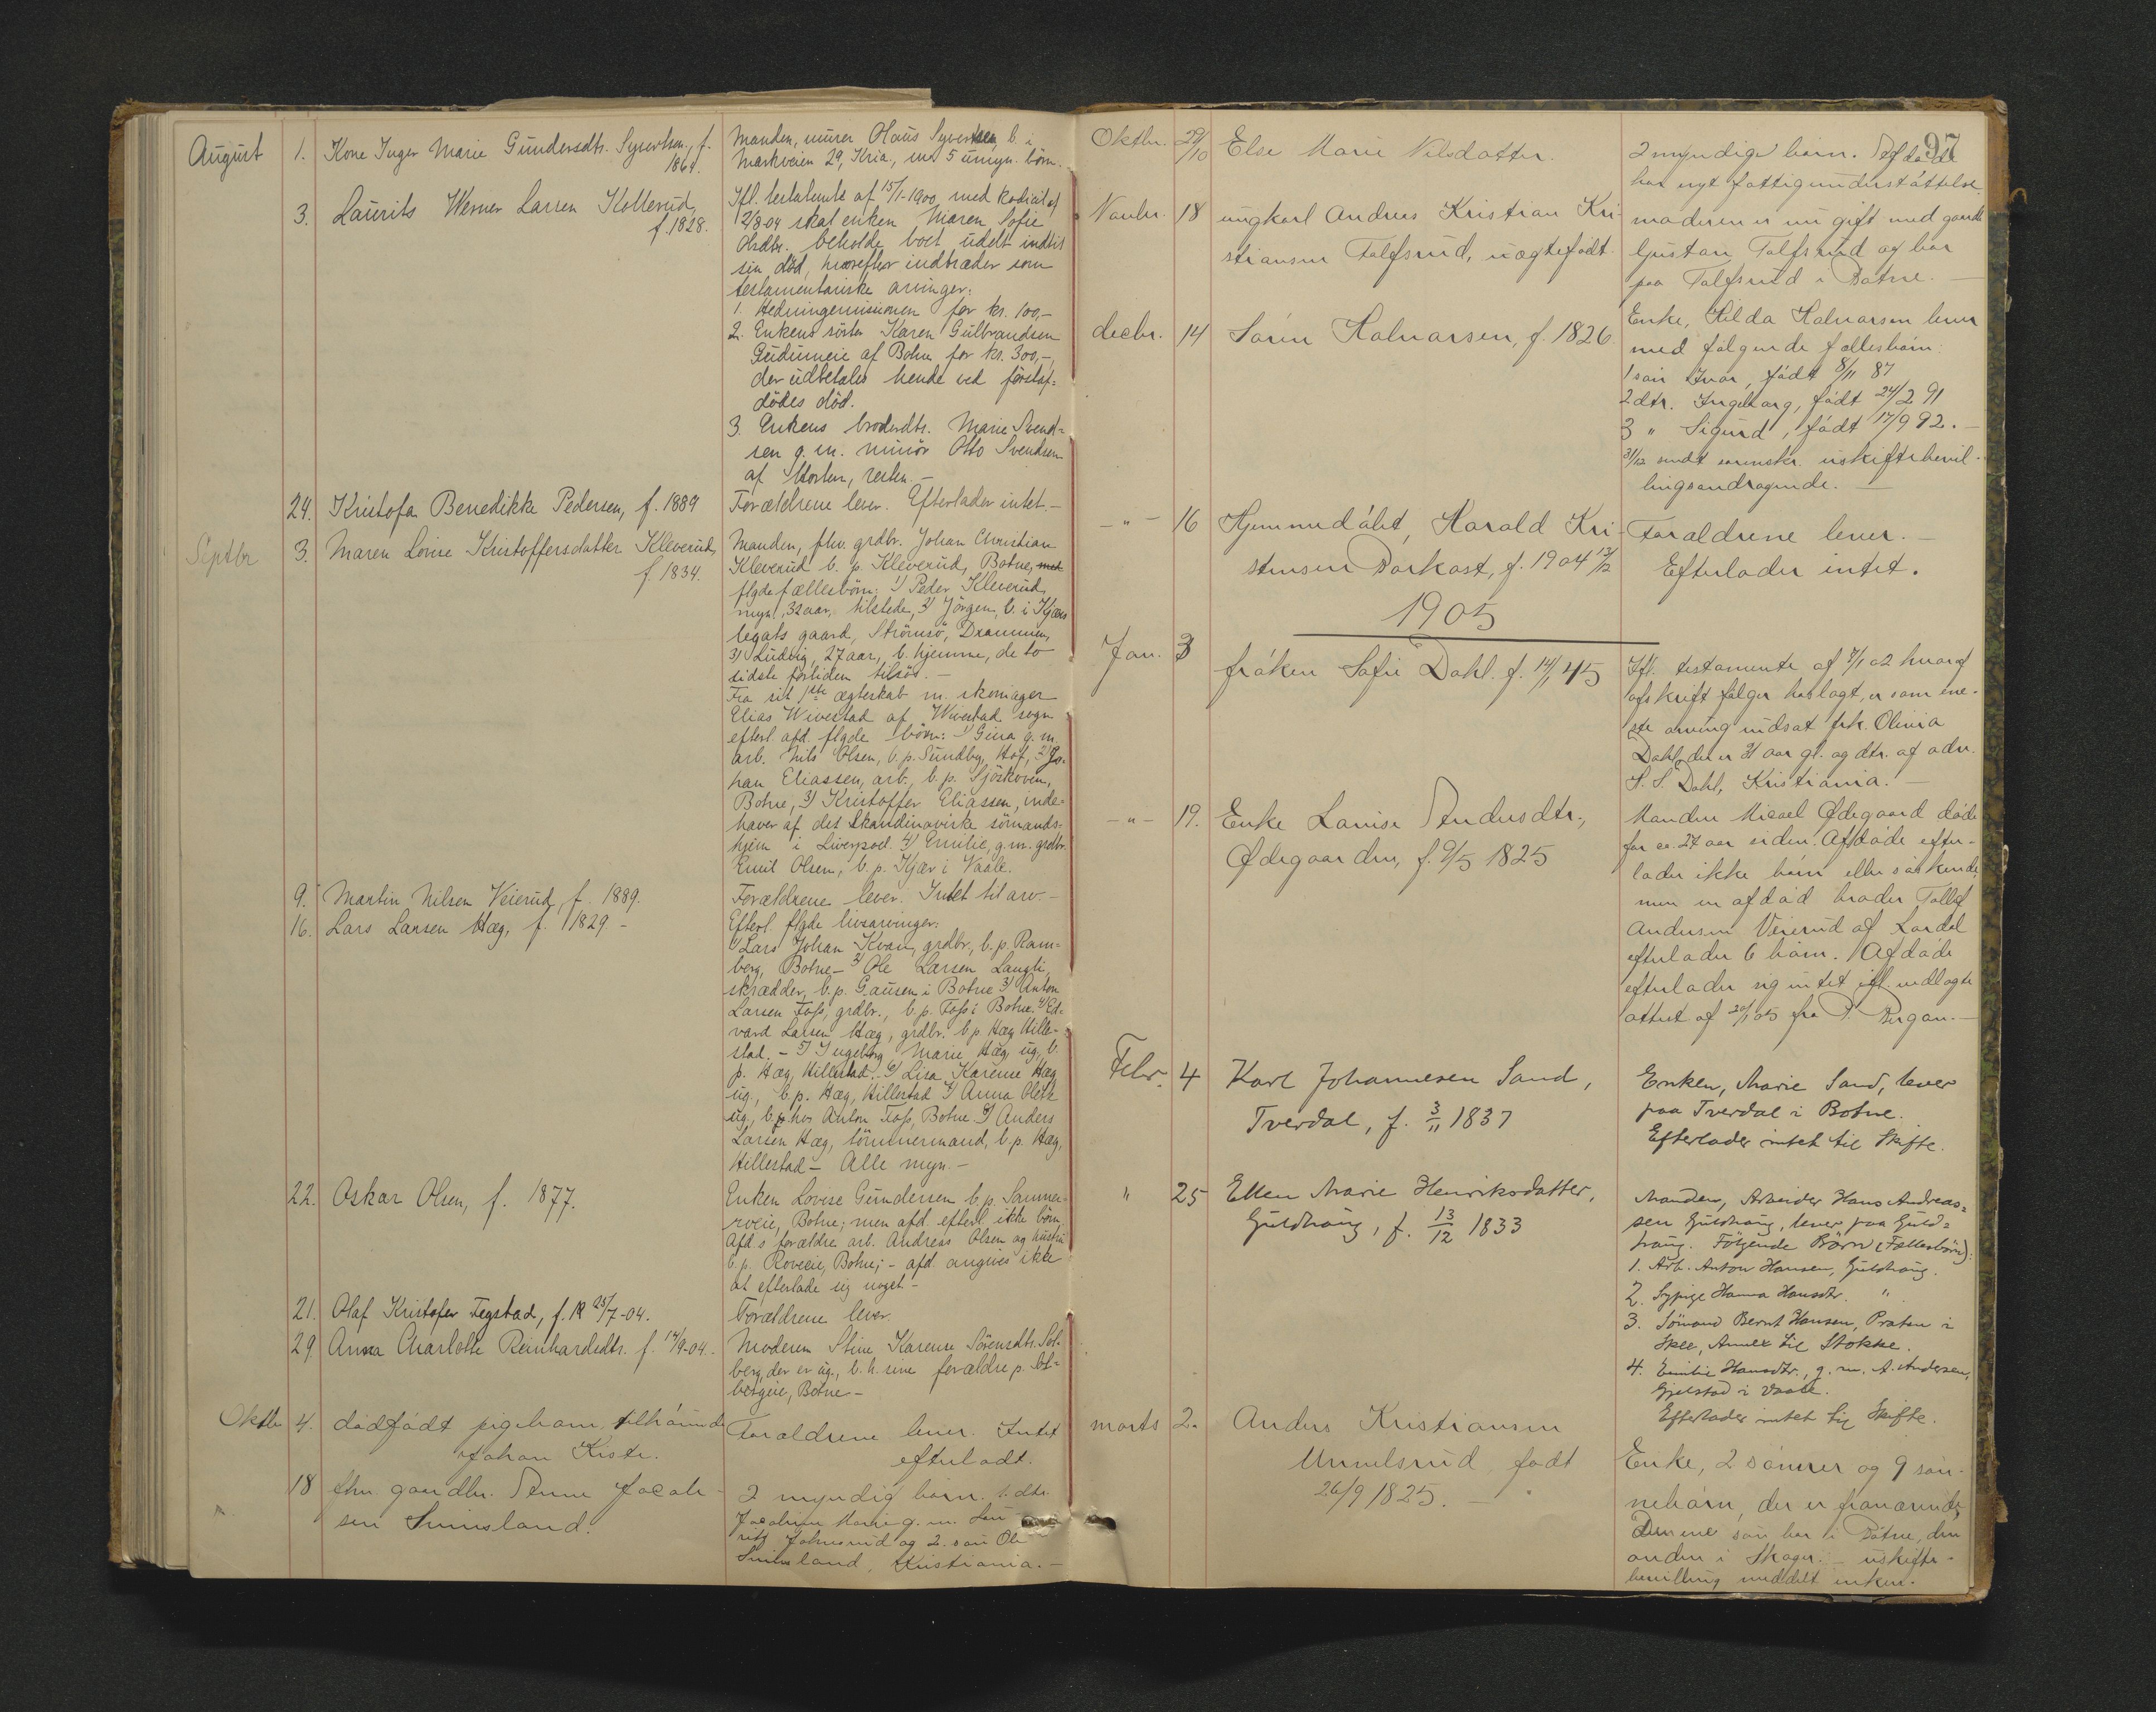 August 1. Kone Inger Marie Gundersdtr. Syvertsen, f.
1864.
Manden, murer Olaus Syvertsen, b. i
Markveien 29, Kria., m. 5 umyn. børn.
3. Laurits Werner Larsen Kollerud,
f. 1828.
Ifl. testamente af 15/1-1900, med kodicil af
2/8 04 skal enken Maren Sofie
Olsdtr. beholde boet udelt indtil
sin død, hvorefter indtræder som
testamentariske arvinger:
1. Hedningemissionen for kr. 100,-
2. Enkens søster Karen Gulbrandsen
af Botne for kr. 300,-,
der udbetales hende ved førstaf=
dødes død.
3. Enkens broderdtr. Marie Svend=
sen g. m. minør Otto Svendsen
af Horten, resten. -
24. Kristofa Benedikke Pedersen, f. 1889
Forældrene lever. Efterlader intet. -
Septbr 3. Maren Lovise Kristoffersdatter Kleverud,
f. 1834.
Manden, fhv. grdbr. Johan Christian
Kleverud b. p. Kleverud, Botne, med
flgde fællesbørn: 1) Peder Kleverud,
myn., 32 aar, tilstede, 2) Jörgen, b. i Kjærs
legats gaard, Strömsö, Drammen,
3) Ludvig, 27 aar, b. hjemme, de to
sidste fortiden tilsös. -
Fra sit 1ste ægteskab m. skomager
Elias Wivestad af Wivestad sogn
efterl. afd. flgde börn: 1) Gina g. m.
arb. Nils Olsen, b. p. Sundby, Hof, 2) Jo-
han Eliassen, arb., b. p. Sjöskoven,
Botne, 3) Kristoffer Eliassen, inde=
haver af det Skandinaviske sömands=
hjem i Liverpool. 4) Emilie, g. m. grdbr.
Emil Olsen, b. p. Kjær i Vaale.
9. Martin Nilsen Veierud, f. 1889.
Forældrene lever. Intet til arv. -
16. Lars Larsen Hæg, f. 1829 -
Efterl. flgde livsarvinger:
1) Lars Johan Kvan, grdbr., b. p. Ram=
berg, Botne - 2) Ole Larsen Langli,
skrædder, b. p. Gausen i Botne 3) Anton
Larsen Foss, grdbr., b. p. Foss i Botne. 4) Ed=
vard Larsen Hæg, grdbr. b. p. Hæg Hille-
stad. - 5) Ingeborg Marie Hæg, ug., b.
p. Hæg, Hillestad. 6) Lisa Karene Hæg
ug., b. p. Hæg, Hillestad 7) Anna Oleth
ug., b. p. hos Anton Foss, Botne 8) Anders
Larsen Hæg, tömmermand, b. p. Hæg,
Hillestad - Alle myn. -
22. Oskar Olsen, f. 1877.
Enken Lovise Gundersen b. p. Sanner=
, Botne; men afd. efterl. ikke börn,
Afd.s forældre arb. Andreas Olsen og hustru
b. p. Roveeie, Botne; - afd. angives ikke
at efterlade sig noget -
21. Olaf Kristofer Tegstad, f. 25/7-04.
Forældrene lever.
29. Anna Charlotte Reinhardsdtr. f. 14/9-04.
Moderen Stine Karense Sörensdtr. Sol-
berg, der er ug., b. h. sine forældre p. Sol=
bergeie, Botne -
Oktbr 4. dødfødt pigebarn tilhørende
Johan Kiste.
Forældrene lever. Intet
efterladt.
18 fhv. gaardbr. Anne Jacob-
sen Sunnsland.
2 myndig børn. 1. dtr.
Jacobine Marie g. m.
Johnsrud og 2. søn Ole
Sunnsland, Kristiania. -
97
Oktbr. 29/10 Else Marie Nilsdatter.
2 myndige barn. Afdøde
har nydt fattigunderstøttelse.
Novbr. 18 ungkarl Andreas Kristian Kri-
stiansen Falfsrud, uægtefødt.
moderen er nu gift med gaardbr
Gustav Falfsrud og bor
paa Falfsrud i Botne. -
decbr. 14 Søren Halvorsen, f. 1826
Enke, Hilda Halvorsen lever
med følgende fællesbørn:
1 søn Ivar, født 8/11 87
2 dtr. Ingeborg, født 24/2 91
3 " Sigurd, født 17/9 92. -
31/12 sendt sorenskr. uskiftebevil-
lingsandragende. -
-"- 16 Hjemmedøbt, Harald Kri-
stensen Dorkast, f. 1904 13/12
Forældrene lever. -
Efterlader intet.
1905
Jan. 3 frøken Sofie Dahl. f. 14/1 45
Ifl. testamente af 7/1 02 hvoraf
afskrift følger henlagt, er som ene-
ste arving indsat frk. Olivia
Dahl, der er 21 aar gl. og dtr. af adv.
S. S. Dahl, Kristiania. -
-"- 19. Enke Lovise Andersdtr.,
Ødegaarden, f. 9/5 1825
Manden Micael Ødegaard døde
for ca. 27 aar siden. Afdøde efter-
lader ikke børn eller søskende,
men en afdød broder Tollef
Andersen Veierud af Lardal
efterlader 6 børn. Afdøde
efterlader sig intet ifl. vedlagte
attest af 20/1 05 fra P. Bergan. -
Febr. 4 Karl Johannesen Sand,
Tverdal, f. 3/11 1837
Enken, Marie Sand, lever
paa Tverdal i Botne.
Efterlader intet til Skifte.
" 25 Ellen Marie Henriksdatter,
Guldhaug, f. 13/12 1833
Manden, Arbeider Hans Andreas=
sen Guldhaug, lever paa Guld=
haug. Følgende Børn (Fællesbørn):
1. Arb. Anton Hansen, Guldhaug.
2. Sypige Hanna Hansdtr. "
3. Sömand Bernt Hansen, Praten i
Skee, Annex til Stokke.
4. Emilie Hansdtr., g. m. A. Andersen,
Gjelstad i Vaale.
Efterlader intet til Skifte.
marts 2. Anders Kristiansen
Unnelsrud født
26/9 1825. -
Enke, 2 sønner og 9 søn-
nebørn, der er fraværende,
Den ene søn bor i Botne, den
anden i Skoger. - uskifte-
bevilling meddelt enken.